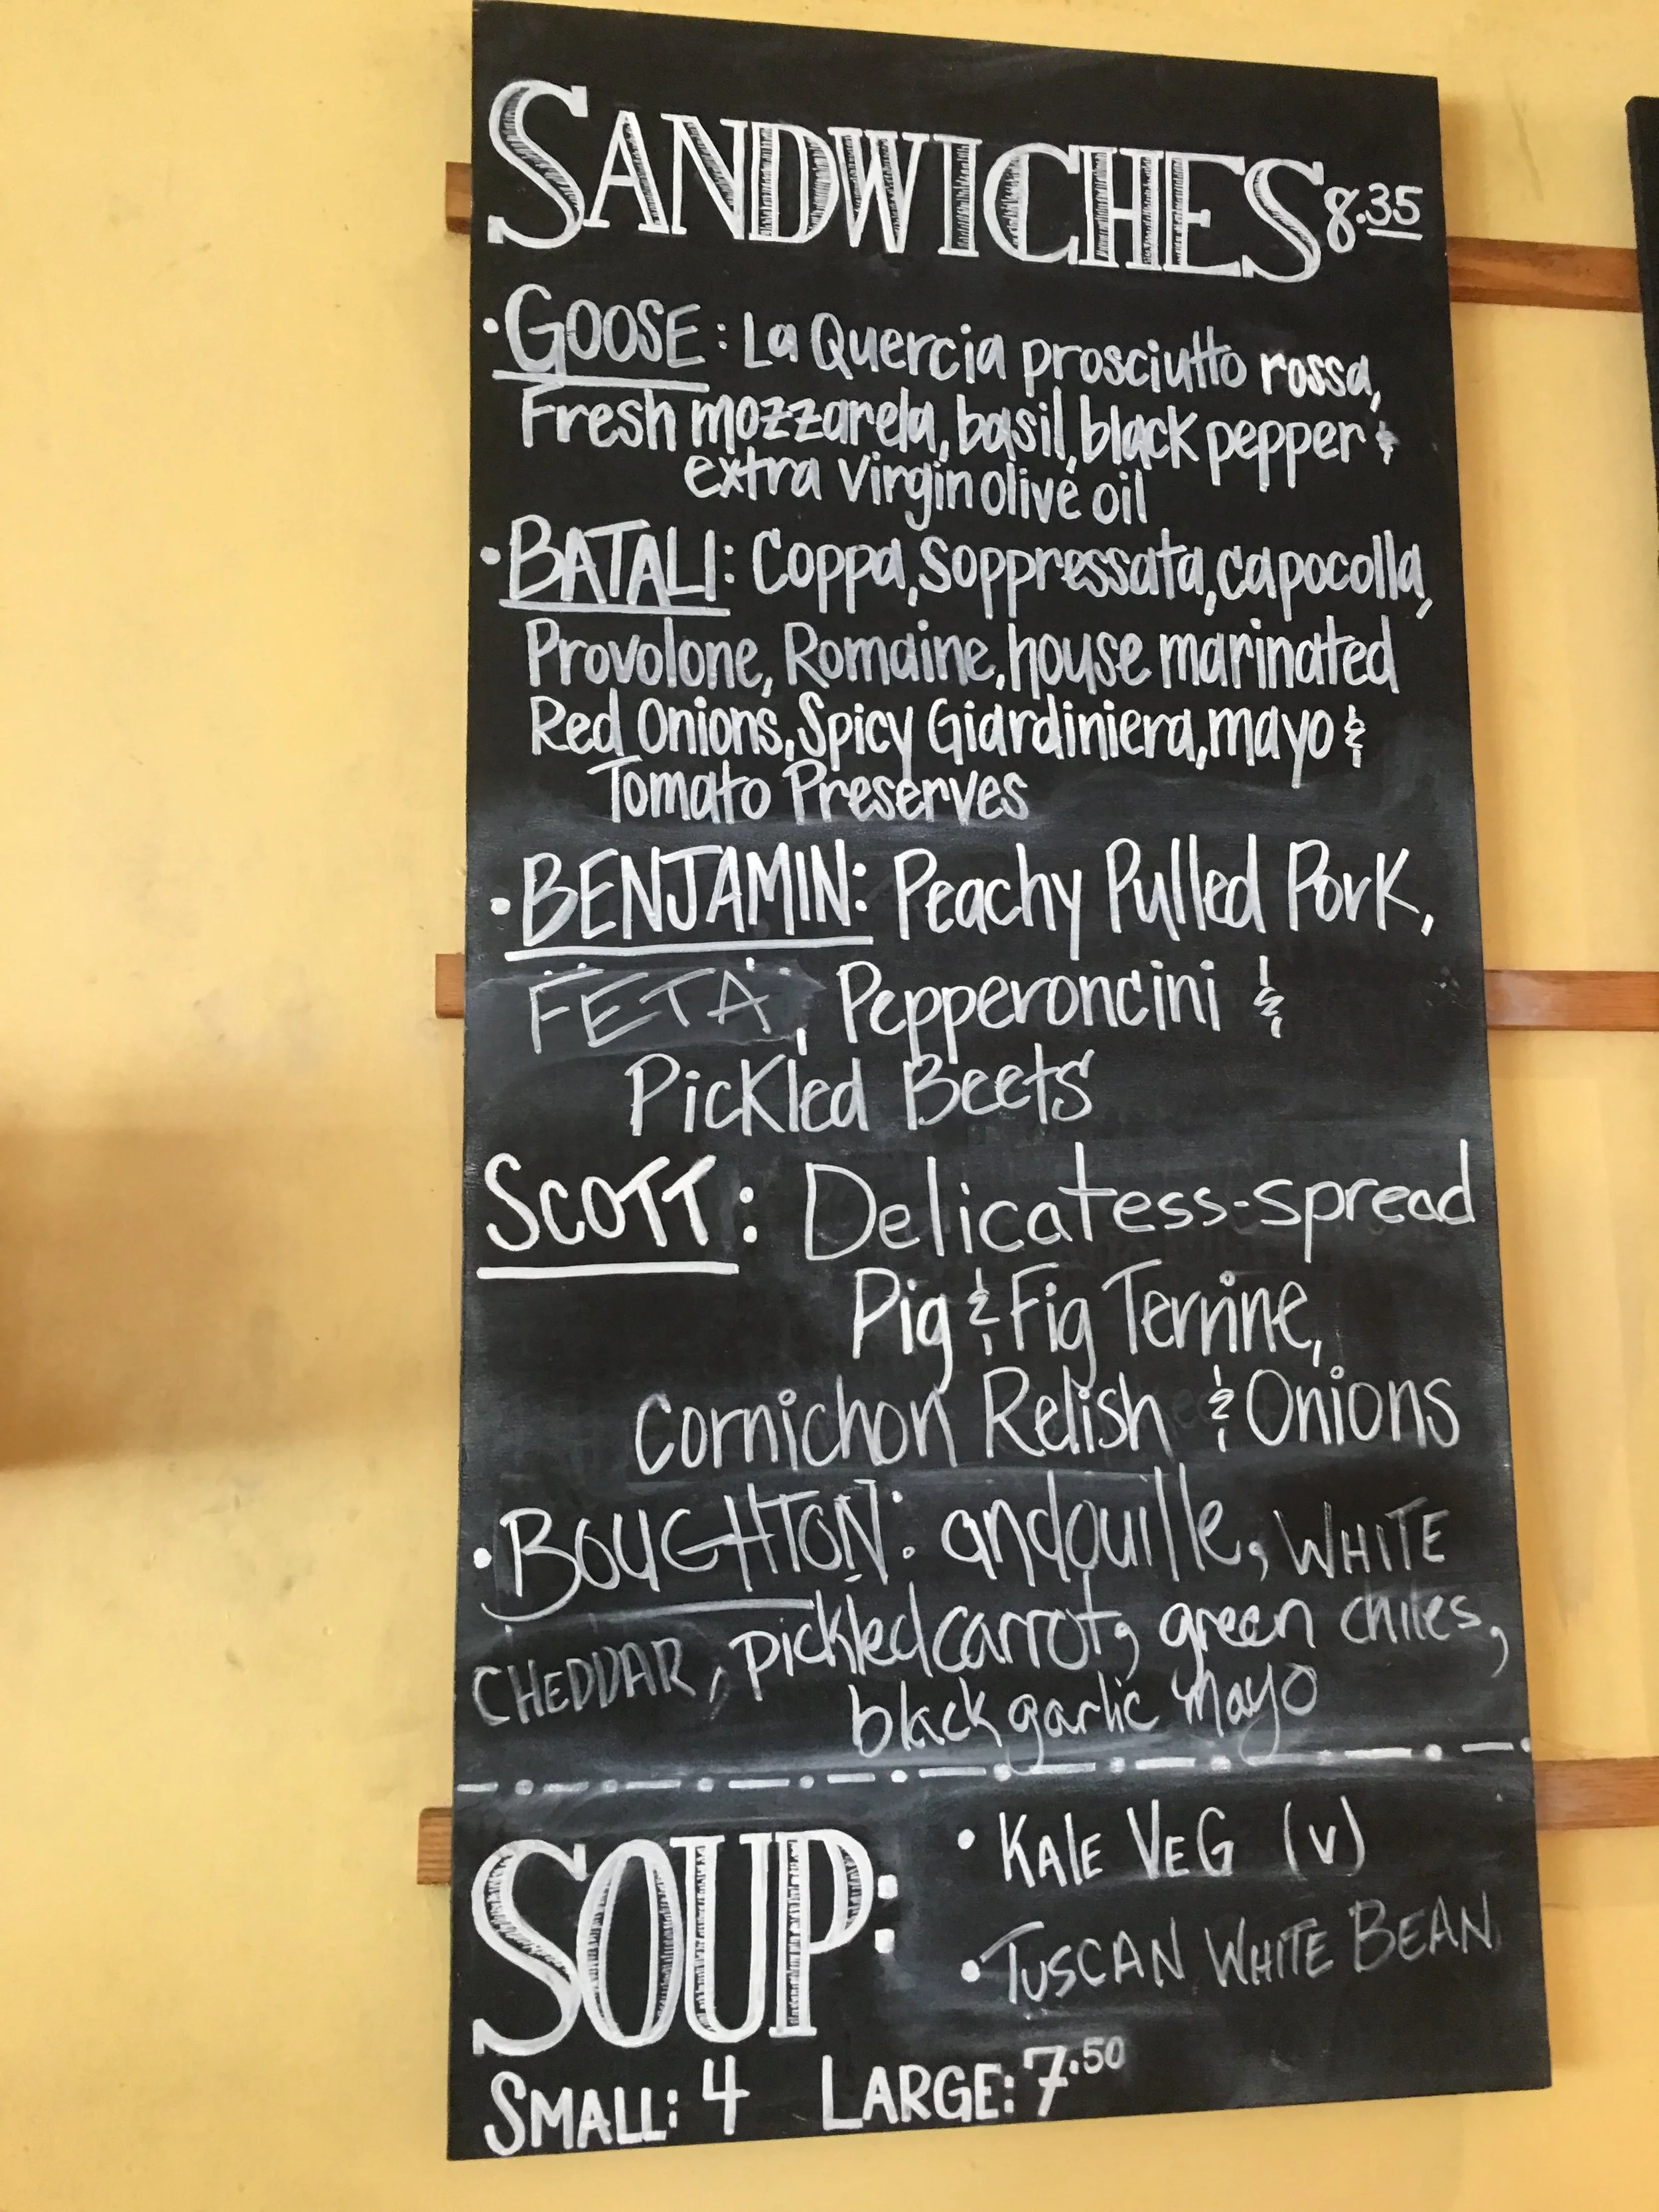 SANDWICHES 8.35
• GOOSE: La Quercia prosciutto rossa,
Fresh mozzarela, basil, black pepper &
extra virgin olive oil
• BATALI: Coppa, Soppressata, capocolla,
Provolone, Romaine, house marinated
Red Onions, Spicy Giardiniera, mayo &
Tomato Preserves
• BENJAMIN: Peachy Pulled Pork,
FETA, Pepperoncini &
Pickled Beets
SCOTT: Delicatess-spread
Pig & Fig Terrine,
Cornichon Relish & Onions
• BOUGHTON: andouille, WHITE
CHEDDAR, pickled carrot, green chiles,
black garlic mayo
SOUP:
• KALE VEG (V)
• TUSCAN WHITE BEAN
SMALL: 4 LARGE: 7.50